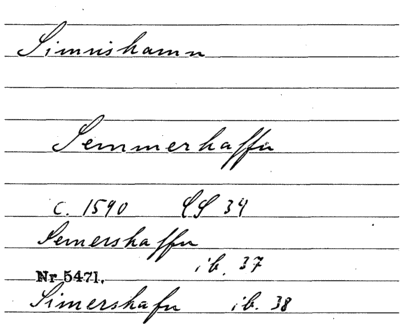 Simrishamn
Semmerhaffn
c. 1590 SS 34
Semershaffn
ib. 37
Nr 5471.
Simershafn ib. 38